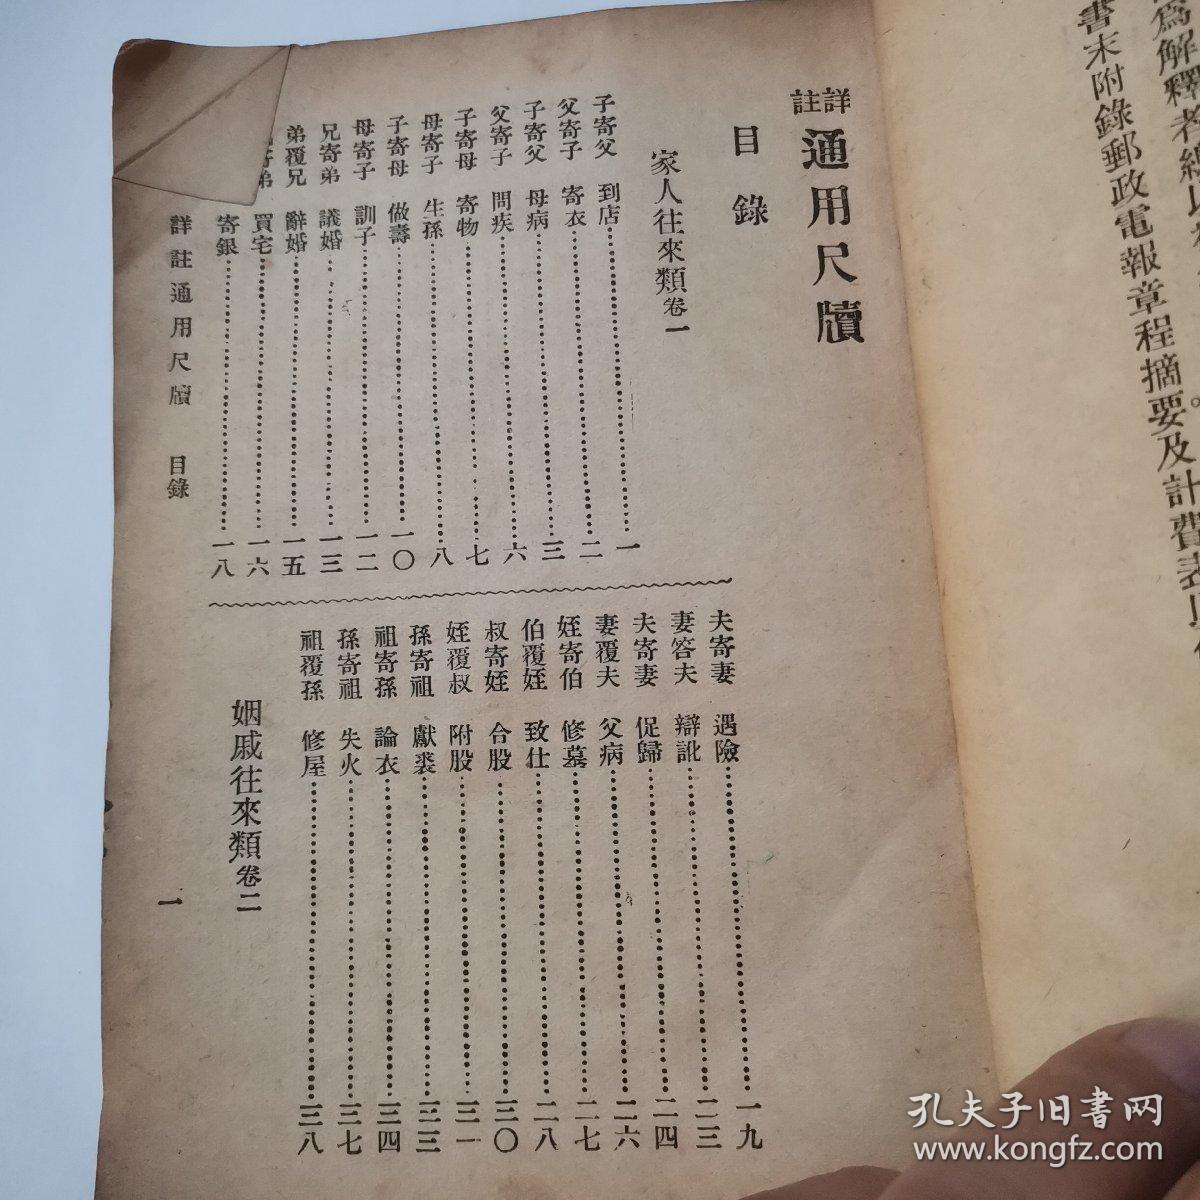 書末附錄郵政電報章程摘要及計費表
詳註通用尺牘
目錄
家人往來類卷一
子寄父 到店 一
父寄子 寄衣 二
子寄父 母病 三
父寄子 問疾 六
子寄母 寄物 七
母寄子 生孫 八
子寄母 做壽 一〇
母寄子 訓子 一二
兄寄弟 議婚 一三
弟覆兄 辭婚 一五
寄弟 買宅 一六
寄銀 一八
夫寄妻 遇險 一九
妻答夫 辯訛 二三
夫寄妻 促歸 二四
妻覆夫 父病 二六
姪寄伯 修墓 二七
伯覆姪 致仕 二八
叔寄姪 合股 三〇
姪覆叔 附股 三一
孫寄祖 獻裘 三三
祖寄孫 論衣 三四
孫寄祖 失火 三七
祖覆孫 修屋 三八
姻戚往來類卷二
詳註通用尺牘 目錄 一
孔夫子旧书网
www.kongfz.com